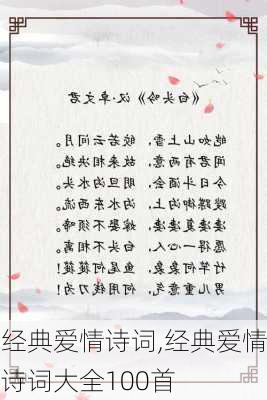 《白头吟》汉·卓文君
皑如山上雪,皎若云间月。
闻君有两意,故来相决绝。
今日斗酒会,明旦沟水头。
躞蹀御沟上,沟水东西流。
凄凄复凄凄,嫁娶不须啼。
愿得一心人,白头不相离。
竹竿何袅袅,鱼尾何簁簁!
男儿重意气,何用钱刀为!
经典爱情诗词,经典爱情
诗词大全100首